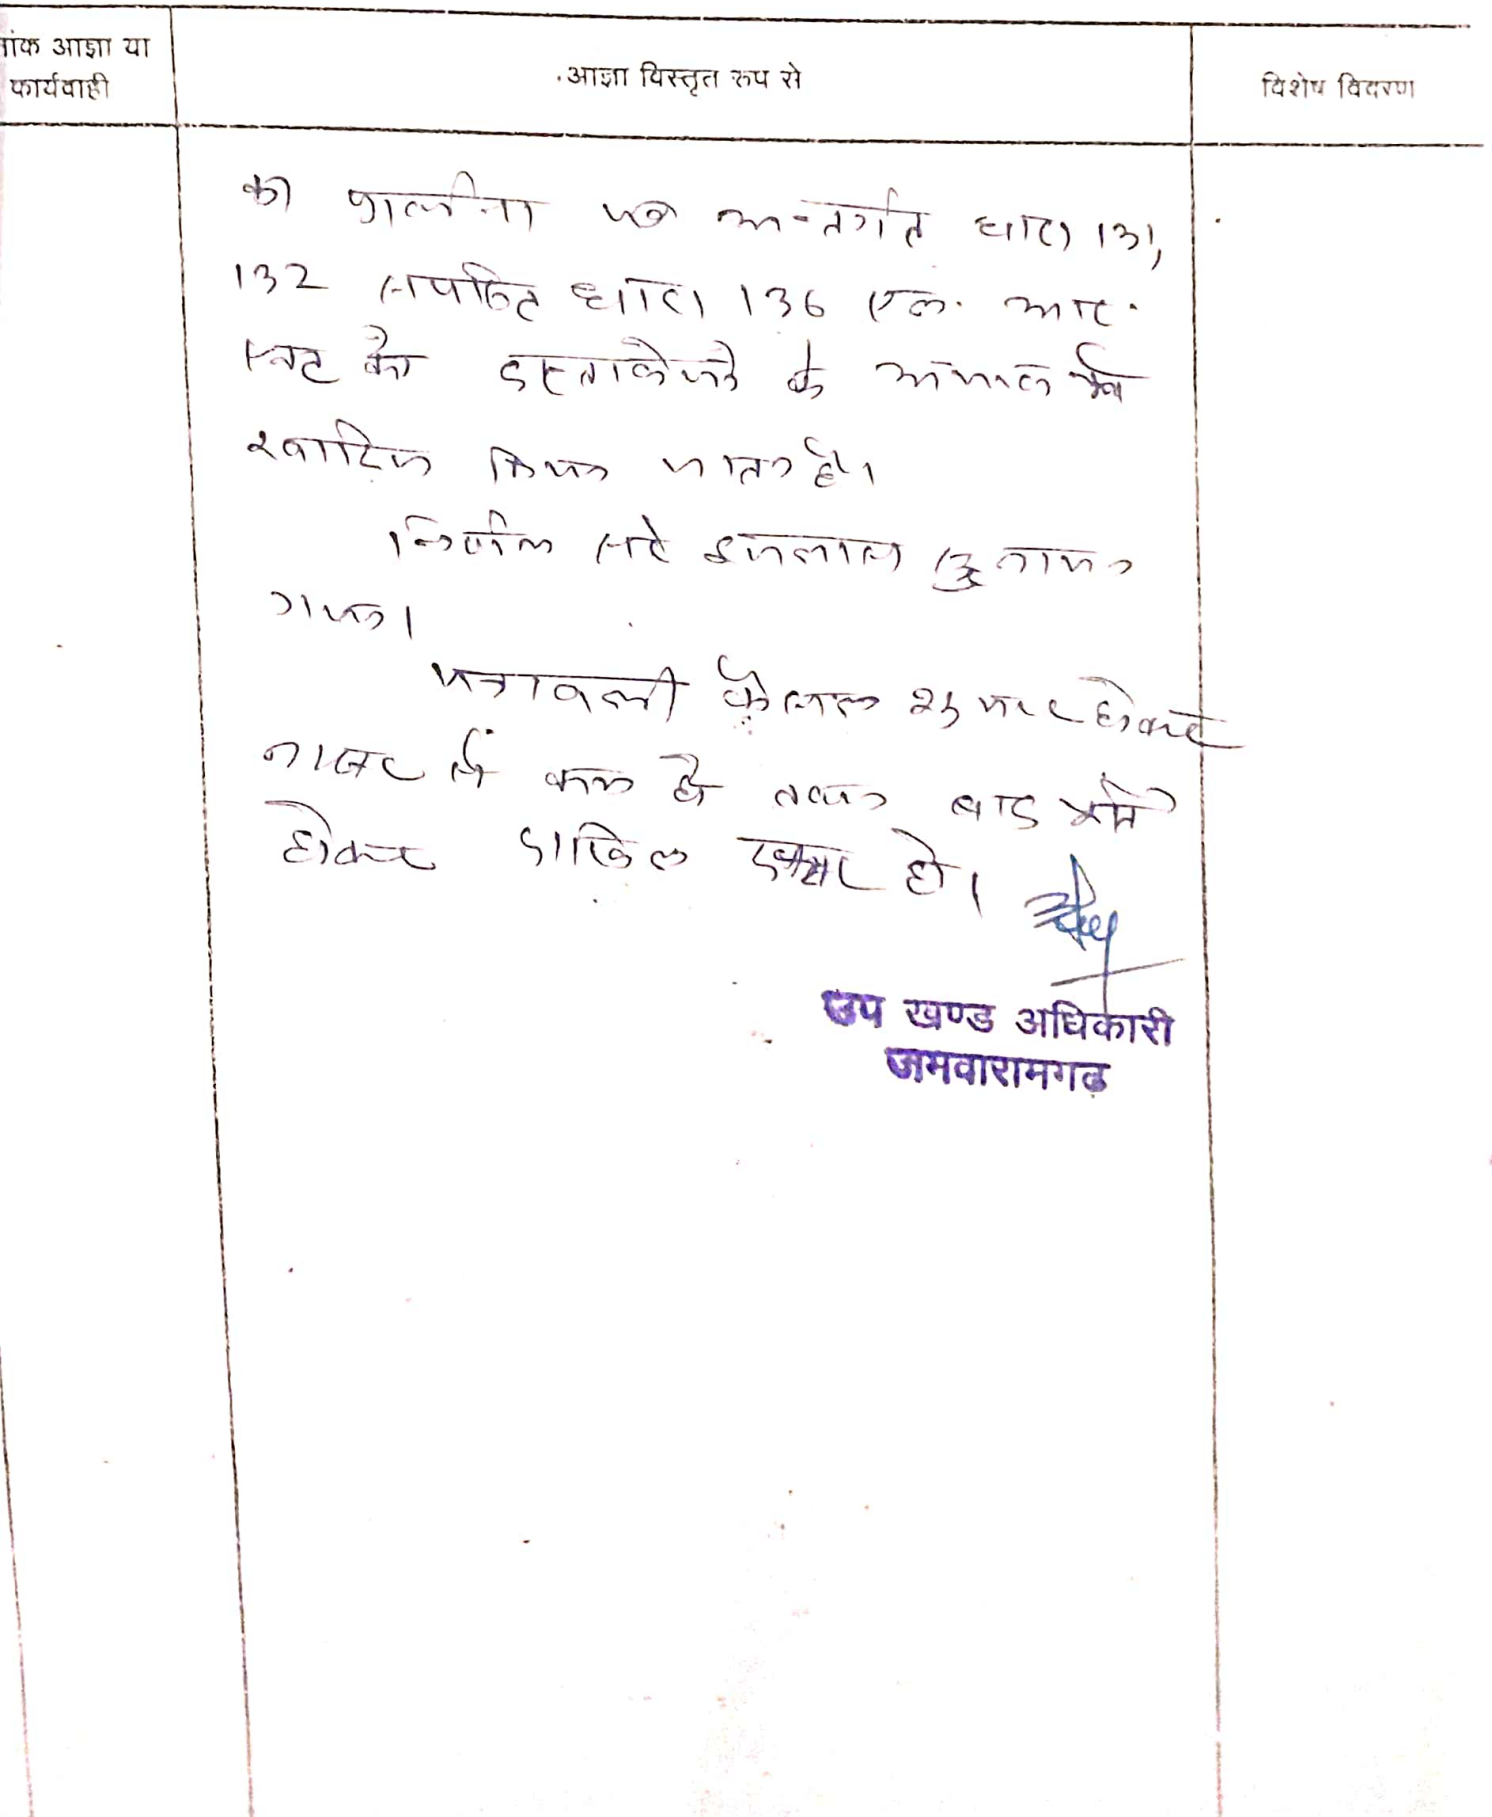 नांक आज्ञा या
कार्यवाही
आज्ञा विस्तृत रूप से
विशेष विवरण
का प्रार्थना पत्र अन्तर्गत धारा 131,
132 सपठित धारा 136 एल. आर.
एक्ट का दस्तावेजो के अभाव में
खारिज किया जाता है।
निर्णय सरे इजलास सुनाया
गया।
पत्रावली फैसल शुमार होकर
नम्बर से कम हो तथा बाद
होकर दाखिल दफ्तर हो।
उप खण्ड अधिकारी
जमवारामगढ़